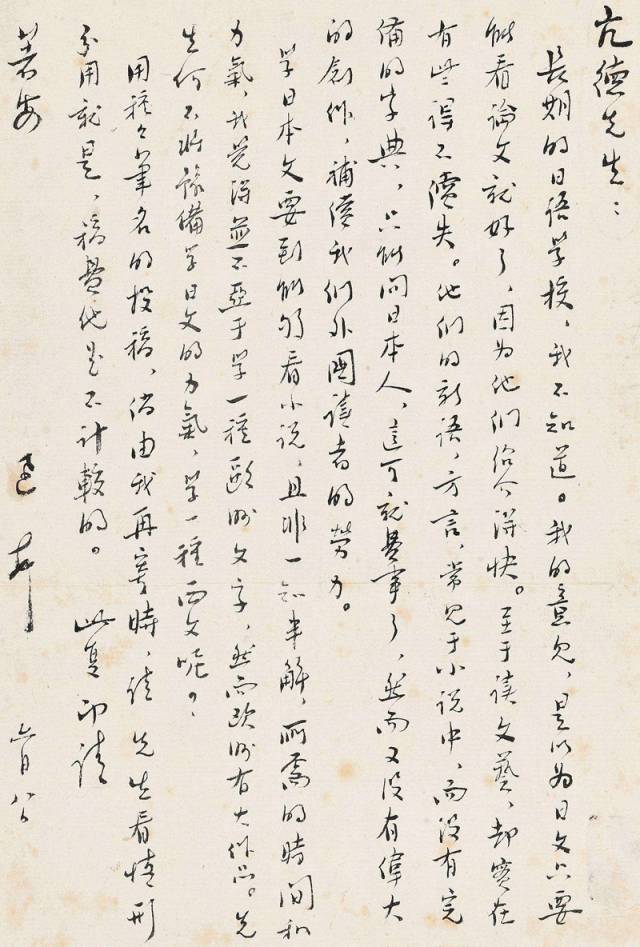 亢德先生：
長期的日语学校，我不知道。我的意见，是以为日文只要
能看論文就好了，因为他们绍介得快。至于读文藝，却实在
有些得不償失。他们的新语，方言，常见于小说中，而没有完
備的字典，只能问日本人，這可就费事了，然而又没有偉大
的創作，補償我们外國读者的劳力。
学日本文要到能够看小说，且非一知半解，所需的时间和
力氣，我觉得並不亞于学一種歐洲文字，然而欧洲有大作品。先
生何不将豫備学日文的力氣，学一種西文呢？
用種々筆名的投稿，倘由我再寄時，请 先生看情形
分用就是，稿费他是不计較的。 此复即请
著安
迅 上
六月八日